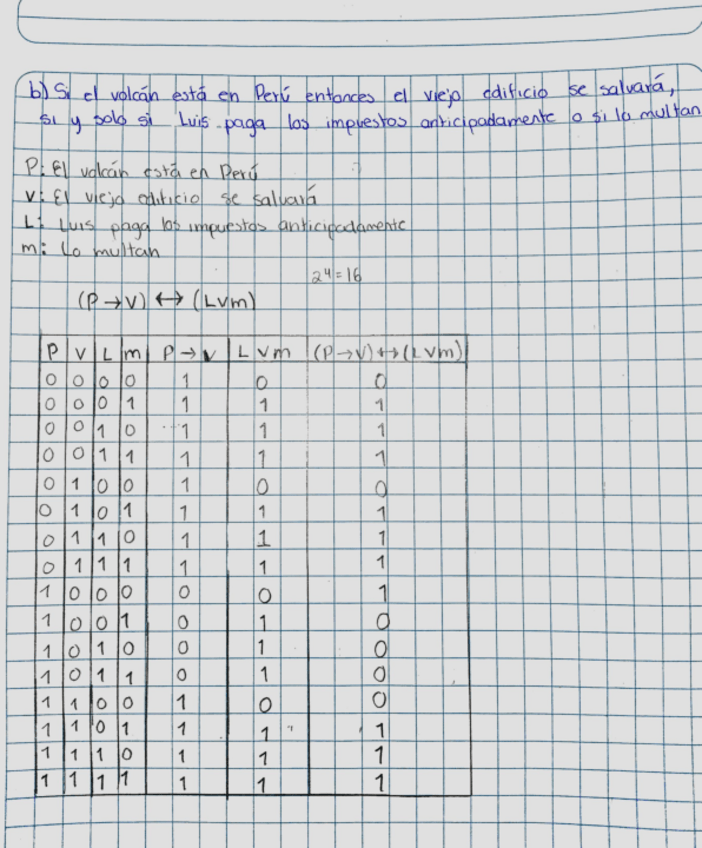 b) Si el volcán está en Perú entonces el viejo edificio se salvará,
si y solo si Luis paga los impuestos anticipadamente o si lo multan
P: El volcán está en Perú
V: El viejo edificio se salvará
L: Luis paga los impuestos anticipadamente
m: Lo multan
2⁴=16
(P→V) ↔ (Lvm)
P V L m P→V L v m (P→V)↔(Lvm)
0 0 0 0 1 0 0
0 0 0 1 1 1 1
0 0 1 0 1 1 1
0 0 1 1 1 1 1
0 1 0 0 1 0 0
0 1 0 1 1 1 1
0 1 1 0 1 1 1
0 1 1 1 1 1 1
1 0 0 0 0 0 1
1 0 0 1 0 1 0
1 0 1 0 0 1 0
1 0 1 1 0 1 0
1 1 0 0 1 0 0
1 1 0 1 1 1 1
1 1 1 0 1 1 1
1 1 1 1 1 1 1